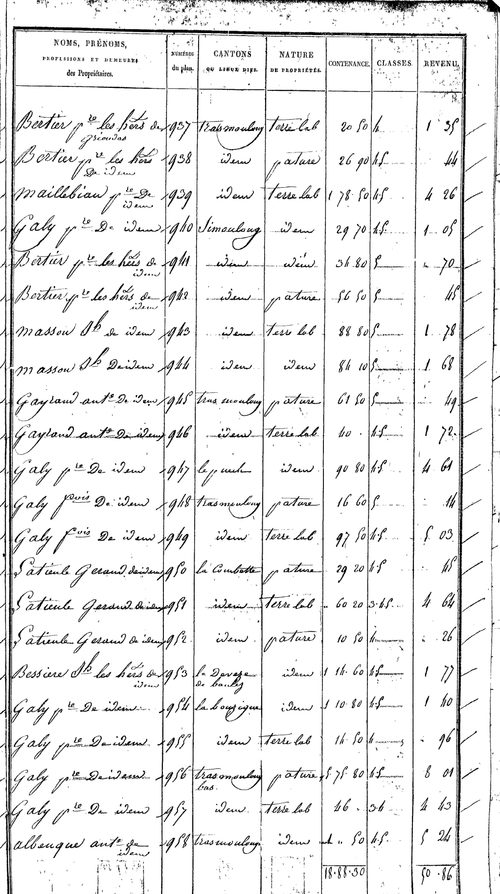 NOMS, PRÉNOMS, PROFESSIONS ET DEMEURES des Propriétaires. NUMÉROS du plan. CANTONS OU LIEUX DITS. NATURE DE PROPRIÉTÉS. CONTENANCE. CLASSES. REVENU.
Bertier pre les hérs de 937 trasmoulong terre lab 20 50 4 1 35
Bertier pre les hérs De idem 938 idem pature 26 90 4.5 44
Maillebiau pre De idem 939 idem terre lab 1 78 50 4.5 4 26
Galy pre De idem 940 Simoulong idem 29 70 4.5 1 05
Bertier pre les hérs de idem 941 idem idem 34 80 5 " 70
Bertier pre les hérs de idem 942 idem pature 56 50 5 45
Masson Jh de idem 943 idem terre lab 88 80 5 1 78
Masson Jh De idem 944 idem idem 84 10 5 1 68
Gayraud ante De idem 945 trasmoulong pature 61 50 5 49
Gayraud ante De idem 946 idem terre lab 40 . 4.5 1 72
Galy pre De idem 947 le puech idem 90 80 4.5 4 61
Galy fcois De idem 948 trasmoulong pature 16 60 5 14
Galy fcois De idem 949 idem terre lab 97 50 4.5 5 03
Latieule Geraud de idem 950 la Combette pature 29 20 4.5 45
Latieule Geraud de idem 951 idem terre lab 60 20 3.4.5 4 64
Latieule Geraud de idem 952 idem pature 10 50 4 . 26
Bessiere Jh les hérs de idem 953 la Deveze de idem 1 14 60 4.5 1 77
Galy pre De idem 954 la bouzigue idem 1 10 80 4.5 1 40
Galy pre De idem 955 idem terre lab 14 50 4 . 96
Galy pre De idem 956 trasmoulong bas pature 5 75 80 4.5 8 01
Galy pre De idem 957 idem terre lab 46 . 3.4 4 43
albenque ante de idem 958 trasmoulong idem " 50 4.5 5 24
18.88.30 50.86